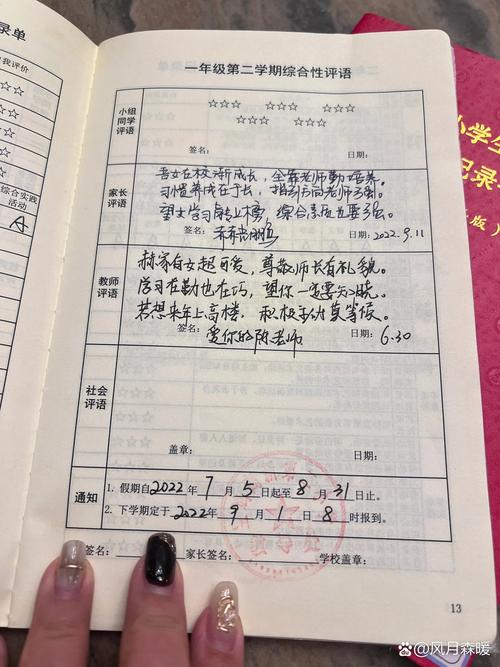 录单
我评价
综合实践
活动
A
一年级第二学期综合性评语
小组
同学
评语
☆☆☆ ☆☆☆ ☆☆☆
☆☆☆ ☆☆☆
签名： 日期：
家长
评语
吾女在校渐成长，全靠老师勤培养。
习惯养成在于长，指引方向老师了强。
望女学习能上榜，综合素质也要强。
签名： 日期：2022.9.11
教师
评语
郝家有女超可爱，尊敬师长有礼貌。
学习在勤也在巧，望你一定要知晓。
若想来年上高楼，积极主动莫等候。
签名：爱你的陈老师 日期：6.30
社会
评语
盖章： 日期：
通知
1. 假期自2022年7月5日起至8月31日止。
2. 下学期定于2022年9月1日8时报到。
签名： 家长签名： 学校盖章：
13
小学生
记录
版）
百家号/风月森暖